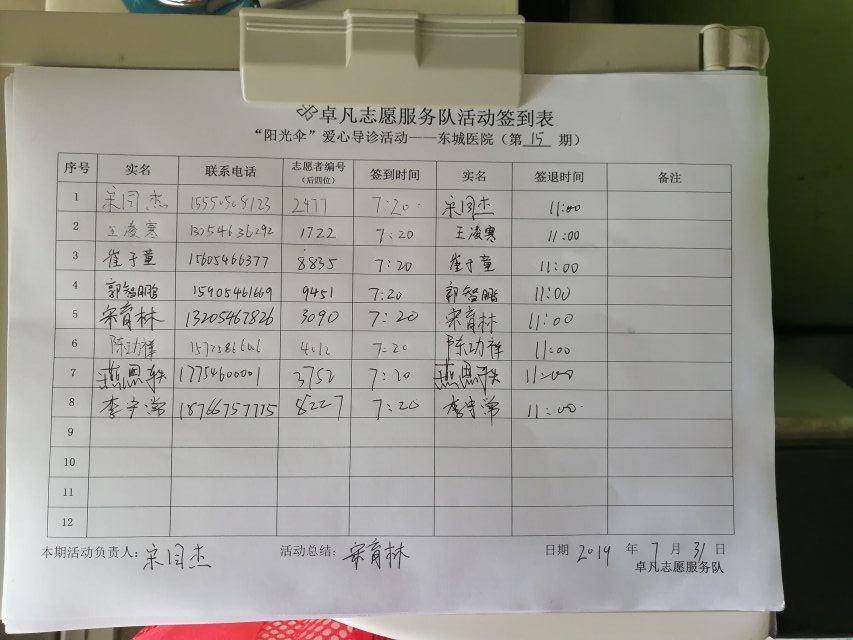 卓凡志愿服务队活动签到表
“阳光伞”爱心导诊活动——东城医院（第 15 期）
序号 实名 联系电话 志愿者编号（后四位） 签到时间 实名 签退时间 备注
1 宋闰杰 15550508123 2477 7:20 宋闰杰 11:00
2 王凌寒 13254636292 1722 7:20 王凌寒 11:00
3 崔于童 15605466377 8835 7:20 崔于童 11:00
4 郭智鹏 15905461669 9451 7:20 郭智鹏 11:00
5 宋育林 13205467826 3090 7:20 宋育林 11:00
6 陈功祥 4012 7:20 陈功祥 11:00
7 17754600001 3752 7:20 11:00
8 18766757775 8227 7:20 11:00
9
10
11
12
本期活动负责人：宋闰杰 活动总结：宋育林 日期 2019 年 7 月 31 日
卓凡志愿服务队